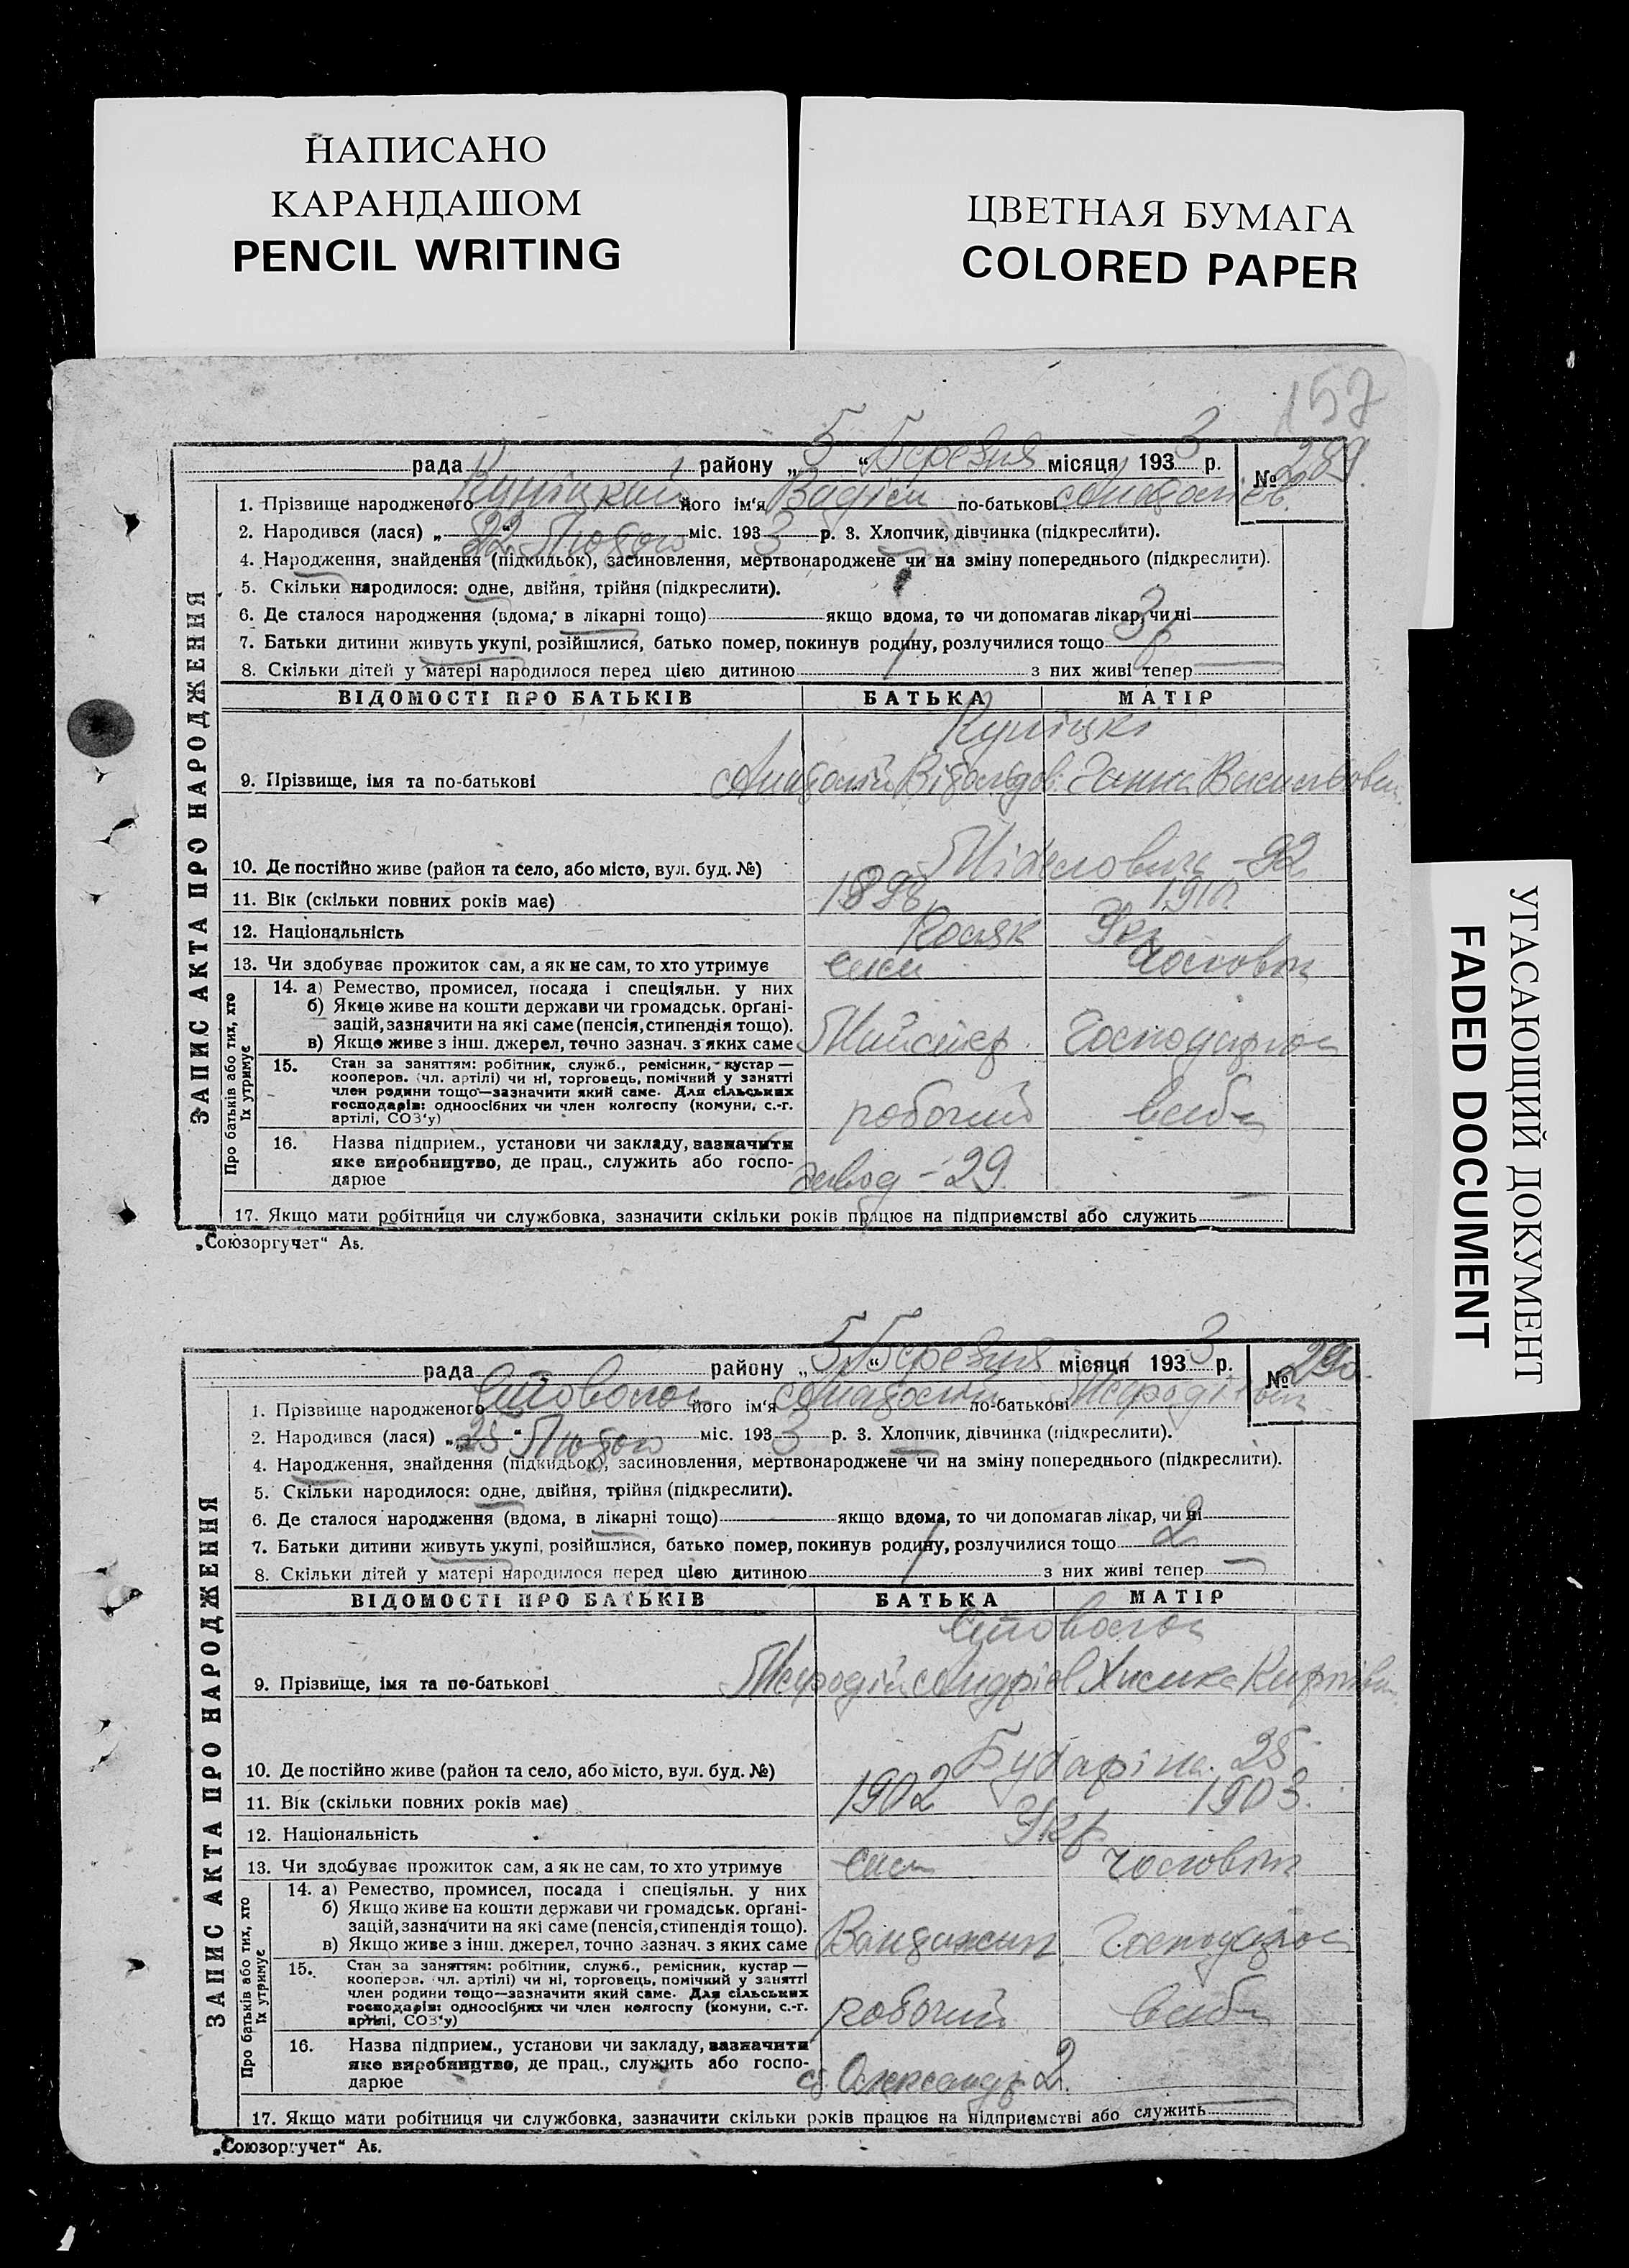 НАПИСАНО
КАРАНДАШОМ
PENCIL WRITING
ЦВЕТНАЯ БУМАГА
COLORED PAPER
УГАСАЮЩИЙ ДОКУМЕНТ
FADED DOCUMENT
157
рада району „5“ Березня місяця 1933 р. № 289.
1. Прізвище народженого його ім'я Вадім по-батькові
2. Народився (лася) „22“ Лютого міс. 1933 р. 3. Хлопчик, дівчинка (підкреслити).
4. Народження, знайдення (підкидьок), засиновлення, мертвонароджене чи на зміну попереднього (підкреслити).
5. Скільки народилося: одне, двійня, трійня (підкреслити).
6. Де сталося народження (вдома, в лікарні тощо) якщо вдома, то чи допомагав лікар, чи ні
7. Батьки дитини живуть укупі, розійшлися, батько помер, покинув родину, розлучилися тощо
8. Скільки дітей у матері народилося перед цією дитиною 1 з них живі тепер —
ЗАПИС АКТА ПРО НАРОДЖЕННЯ
ВІДОМОСТІ ПРО БАТЬКІВ БАТЬКА МАТІР
9. Прізвище, імя та по-батькові Ганна Васильовна
10. Де постійно живе (район та село, або місто, вул. буд. №) 92
11. Вік (скільки повних років має) 1898 1910
12. Національність Укр
13. Чи здобуває прожиток сам, а як не сам, то хто утримує сам чоловік
Про батьків або тих, хто їх утримує
14. а) Ремество, промисел, посада і спеціяльн. у них
б) Якщо живе на кошти держави чи громадськ. організацій, зазначити на які саме (пенсія, стипендія тощо).
в) Якщо живе з інш. джерел, точно зазнач. з яких саме Майстер Господарює
15. Стан за заняттям: робітник, служб., ремісник, кустар —
кооперов. (чл. артілі) чи ні, торговець, помічний у занятті
член родини тощо—зазначити який саме. Для сільських
господарів: одноосібних чи член колгоспу (комуни, с.-г.
артілі, СОЗ'у) робочий
16. Назва підприєм., установи чи закладу, зазначити
яке виробництво, де прац., служить або госпо-
дарює завод - 29
17. Якщо мати робітниця чи службовка, зазначити скільки років працює на підприємстві або служить —
„Союзоргучет“ Аб.
рада району „5“ Березня місяця 1933 р. № 290.
1. Прізвище народженого його ім'я Анатолій по-батькові
2. Народився (лася) „25“ Лютого міс. 1933 р. 3. Хлопчик, дівчинка (підкреслити).
4. Народження, знайдення (підкидьок), засиновлення, мертвонароджене чи на зміну попереднього (підкреслити).
5. Скільки народилося: одне, двійня, трійня (підкреслити).
6. Де сталося народження (вдома, в лікарні тощо) якщо вдома, то чи допомагав лікар, чи ні
7. Батьки дитини живуть укупі, розійшлися, батько помер, покинув родину, розлучилися тощо 2
8. Скільки дітей у матері народилося перед цією дитиною 1 з них живі тепер —
ЗАПИС АКТА ПРО НАРОДЖЕННЯ
ВІДОМОСТІ ПРО БАТЬКІВ БАТЬКА МАТІР
9. Прізвище, імя та по-батькові Андрієв
10. Де постійно живе (район та село, або місто, вул. буд. №) 25
11. Вік (скільки повних років має) 1902 1903
12. Національність Укр
13. Чи здобуває прожиток сам, а як не сам, то хто утримує сам чоловік
Про батьків або тих, хто їх утримує
14. а) Ремество, промисел, посада і спеціяльн. у них
б) Якщо живе на кошти держави чи громадськ. організацій, зазначити на які саме (пенсія, стипендія тощо).
в) Якщо живе з інш. джерел, точно зазнач. з яких саме Господарює
15. Стан за заняттям: робітник, служб., ремісник, кустар —
кооперов. (чл. артілі) чи ні, торговець, помічний у занятті
член родини тощо—зазначити який саме. Для сільських
господарів: одноосібних чи член колгоспу (комуни, с.-г.
артілі, СОЗ'у) робочий
16. Назва підприєм., установи чи закладу, зазначити
яке виробництво, де прац., служить або госпо-
дарює ст. Олександр 2.
17. Якщо мати робітниця чи службовка, зазначити скільки років працює на підприємстві або служить —
„Союзоргучет“ Аб.